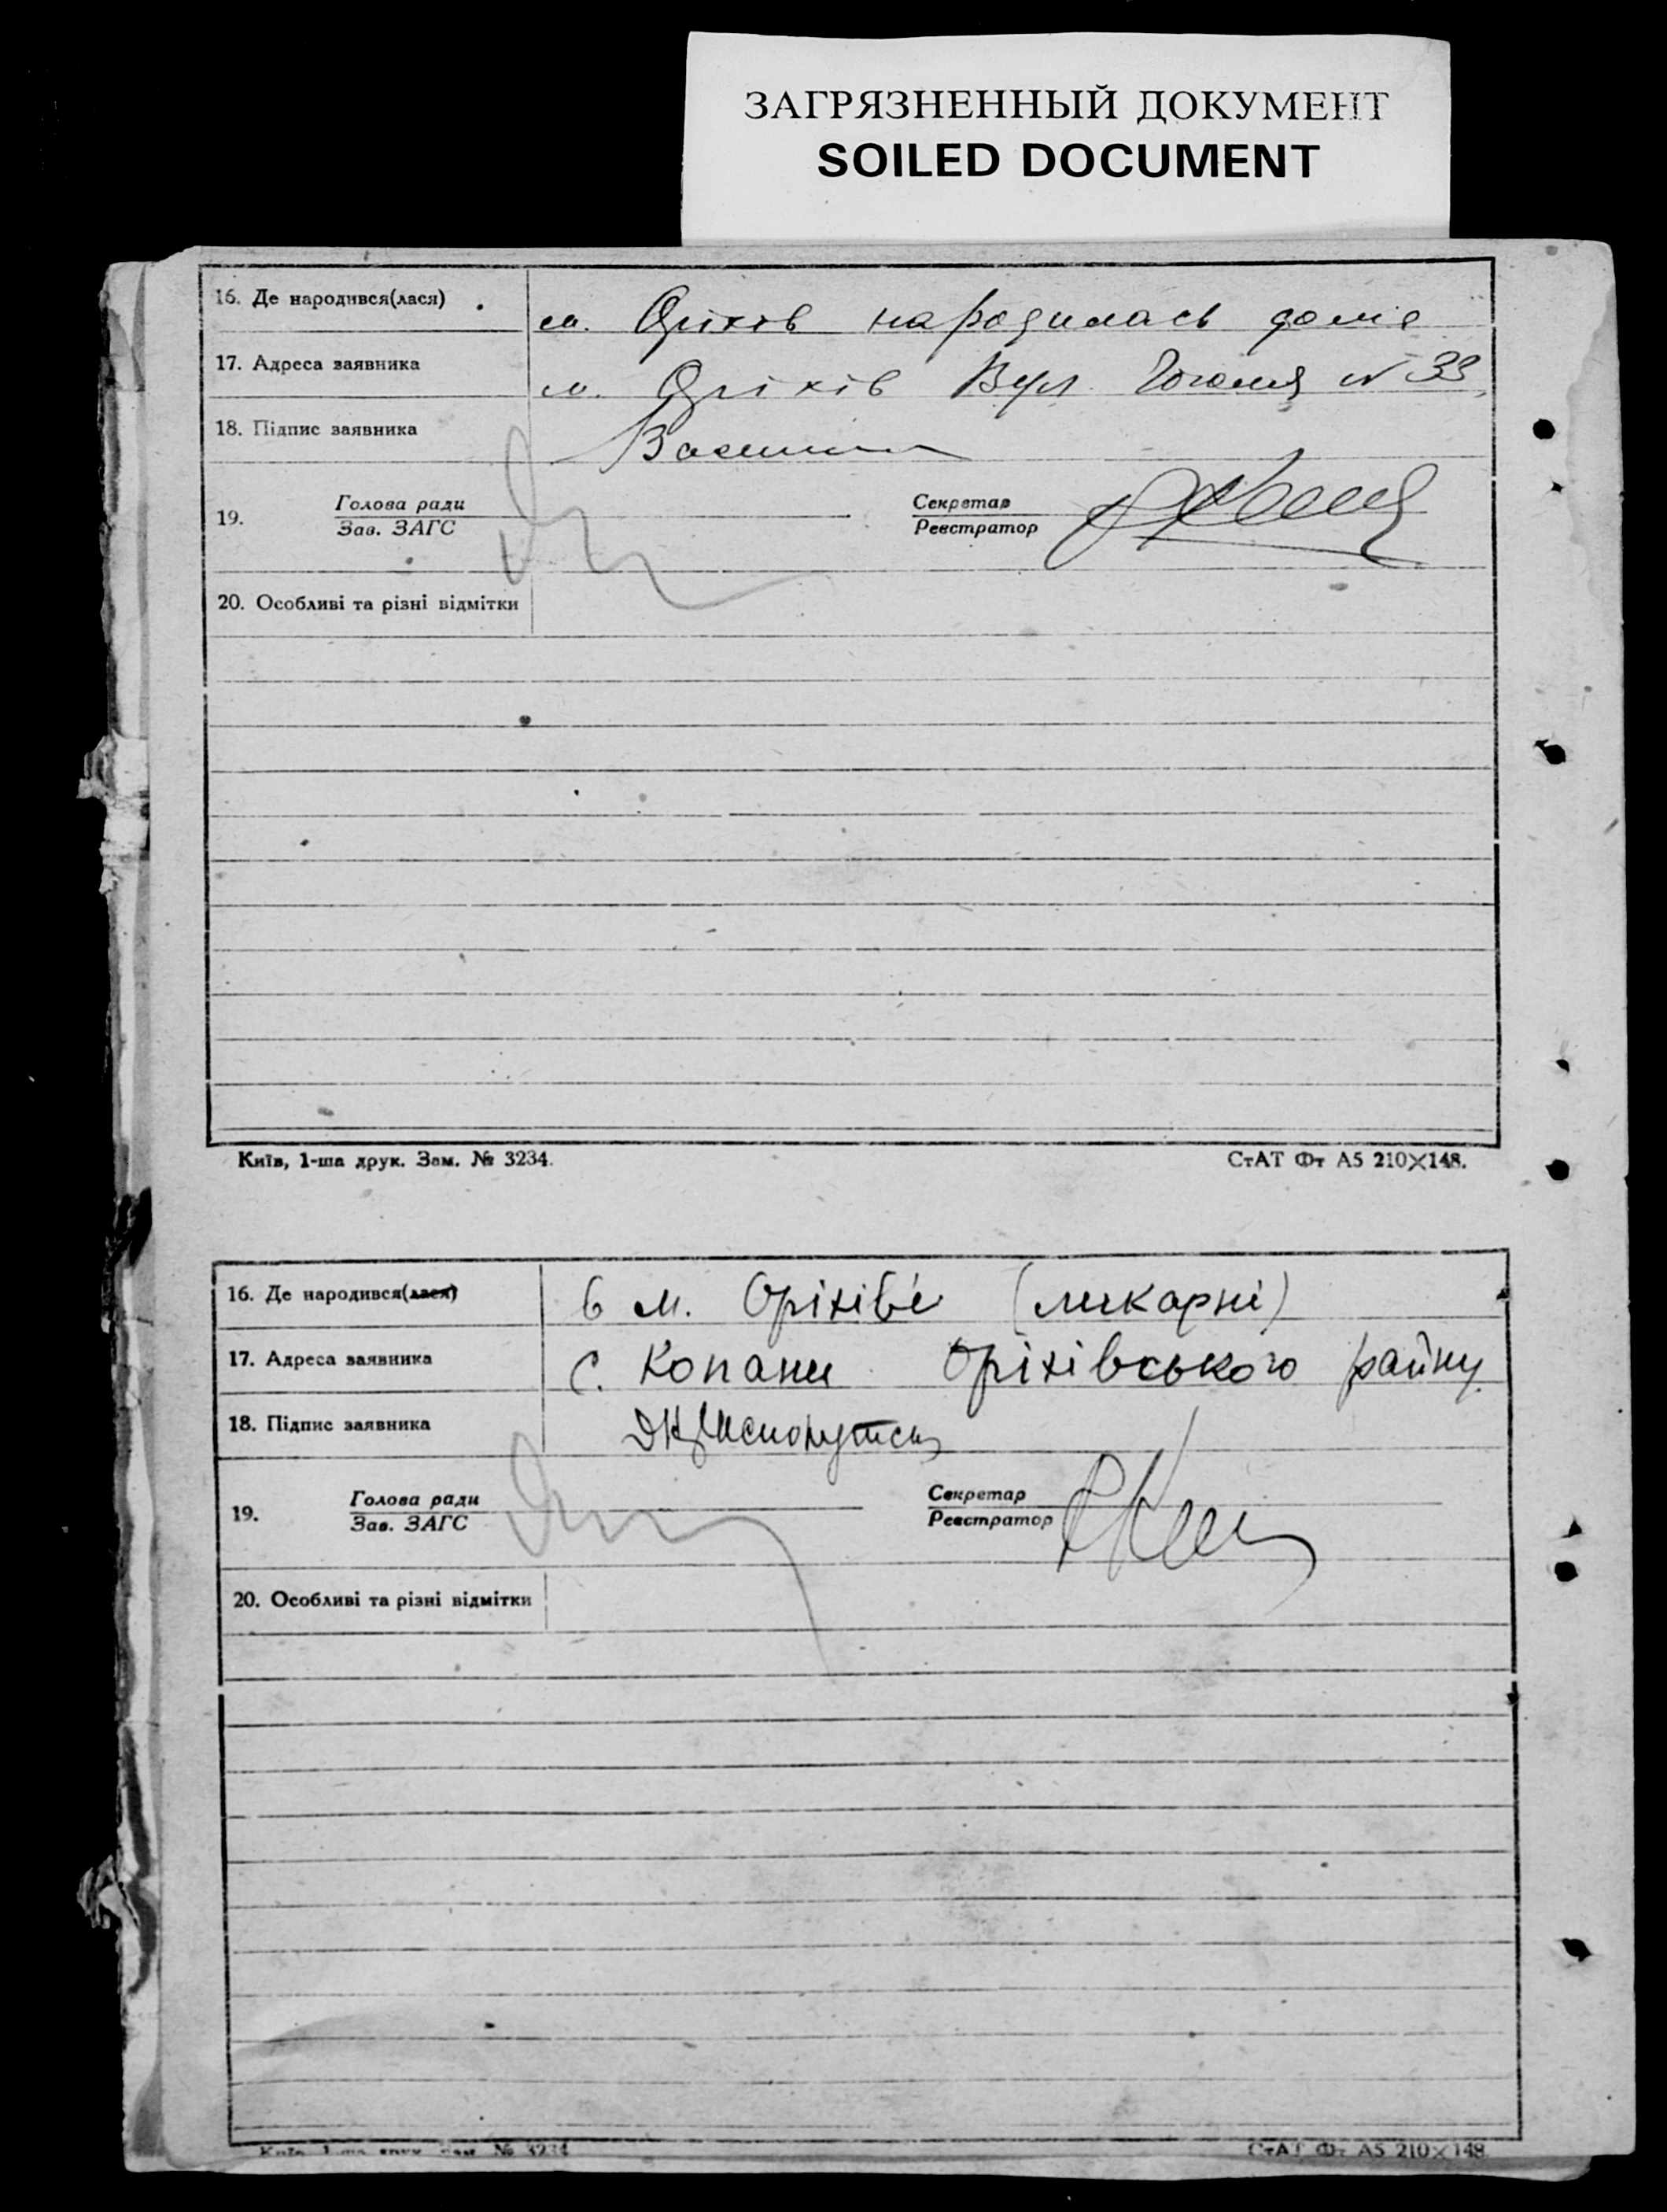 ЗАГРЯЗНЕННЫЙ ДОКУМЕНТ
SOILED DOCUMENT
16. Де народився(лася) м. Оріхів народилась дома
17. Адреса заявника м. Оріхів Вул. Гоголя № 33
18. Підпис заявника
19. Голова ради Секретар
Зав. ЗАГС Реєстратор
20. Особливі та різні відмітки
Київ, 1-ша друк. Зам. № 3234. СтАТ Фт А5 210×148.
16. Де народився(лася) в м. Оріхіві (ликарні)
17. Адреса заявника с. Копани Оріхівського райну
18. Підпис заявника
19. Голова ради Секретар
Зав. ЗАГС Реєстратор
20. Особливі та різні відмітки
Київ, 1-ша друк. Зам. № 3234 СтАТ Фт А5 210×148.